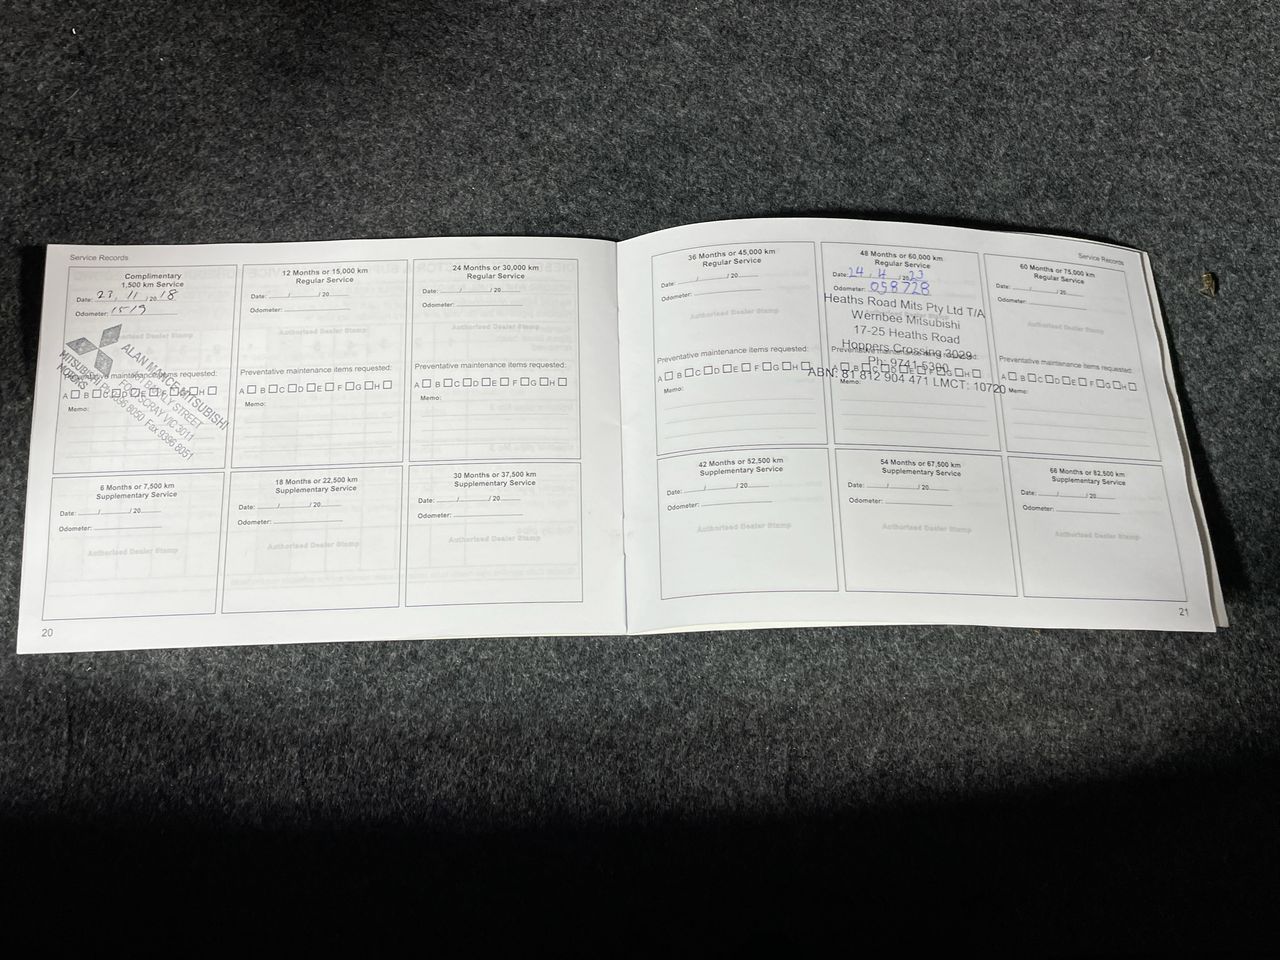 Service Records
Complimentary
1,500 km Service
Date: 23, 11 / 20 18
Odometer: 1519
Authorised Dealer Stamp
MITSUBISHI MOTORS
ALAN MANCE MITSUBISHI
STREET
FOOTSCRAY VIC 3011
8050 Fax 9396 8051
Preventative maintenance items requested:
A B C D E F G H
Memo:
12 Months or 15,000 km
Regular Service
Date: / / 20
Odometer:
Authorised Dealer Stamp
Preventative maintenance items requested:
A B C D E F G H
Memo:
24 Months or 30,000 km
Regular Service
Date: / / 20
Odometer:
Authorised Dealer Stamp
Preventative maintenance items requested:
A B C D E F G H
Memo:
6 Months or 7,500 km
Supplementary Service
Date: / / 20
Odometer:
Authorised Dealer Stamp
18 Months or 22,500 km
Supplementary Service
Date: / / 20
Odometer:
Authorised Dealer Stamp
30 Months or 37,500 km
Supplementary Service
Date: / / 20
Odometer:
Authorised Dealer Stamp
20
Service Records
36 Months or 45,000 km
Regular Service
Date: / / 20
Odometer:
Authorised Dealer Stamp
Preventative maintenance items requested:
A B C D E F G H
Memo:
48 Months or 60,000 km
Regular Service
Date: 24 / 4 / 20 23
Odometer: 058728
Heaths Road Mits Pty Ltd T/A
Werribee Mitsubishi
17-25 Heaths Road
Hoppers Crossing 3029
Preventative maintenance items requested:
Ph: 9741 5300
A B C D E F G H
ABN: 81 812 904 471 LMCT: 10720
Memo:
60 Months or 75,000 km
Regular Service
Date: / / 20
Odometer:
Authorised Dealer Stamp
Preventative maintenance items requested:
A B C D E F G H
Memo:
42 Months or 52,500 km
Supplementary Service
Date: / / 20
Odometer:
Authorised Dealer Stamp
54 Months or 67,500 km
Supplementary Service
Date: / / 20
Odometer:
Authorised Dealer Stamp
66 Months or 82,500 km
Supplementary Service
Date: / / 20
Odometer:
Authorised Dealer Stamp
21